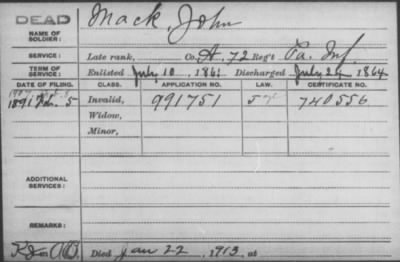 DEAD
NAME OF SOLDIER: Mack, John
SERVICE: Late rank, Co. A, 72 Reg't Pa. Inf.
TERM OF SERVICE: Enlisted July 10, 1861 Discharged July 24, 1864
DATE OF FILING. CLASS. APPLICATION NO. LAW. CERTIFICATE NO.
1891 5 Invalid, 991751 740556
Widow,
Minor,
ADDITIONAL SERVICES:
REMARKS:
Died Jan 22, 1913, at